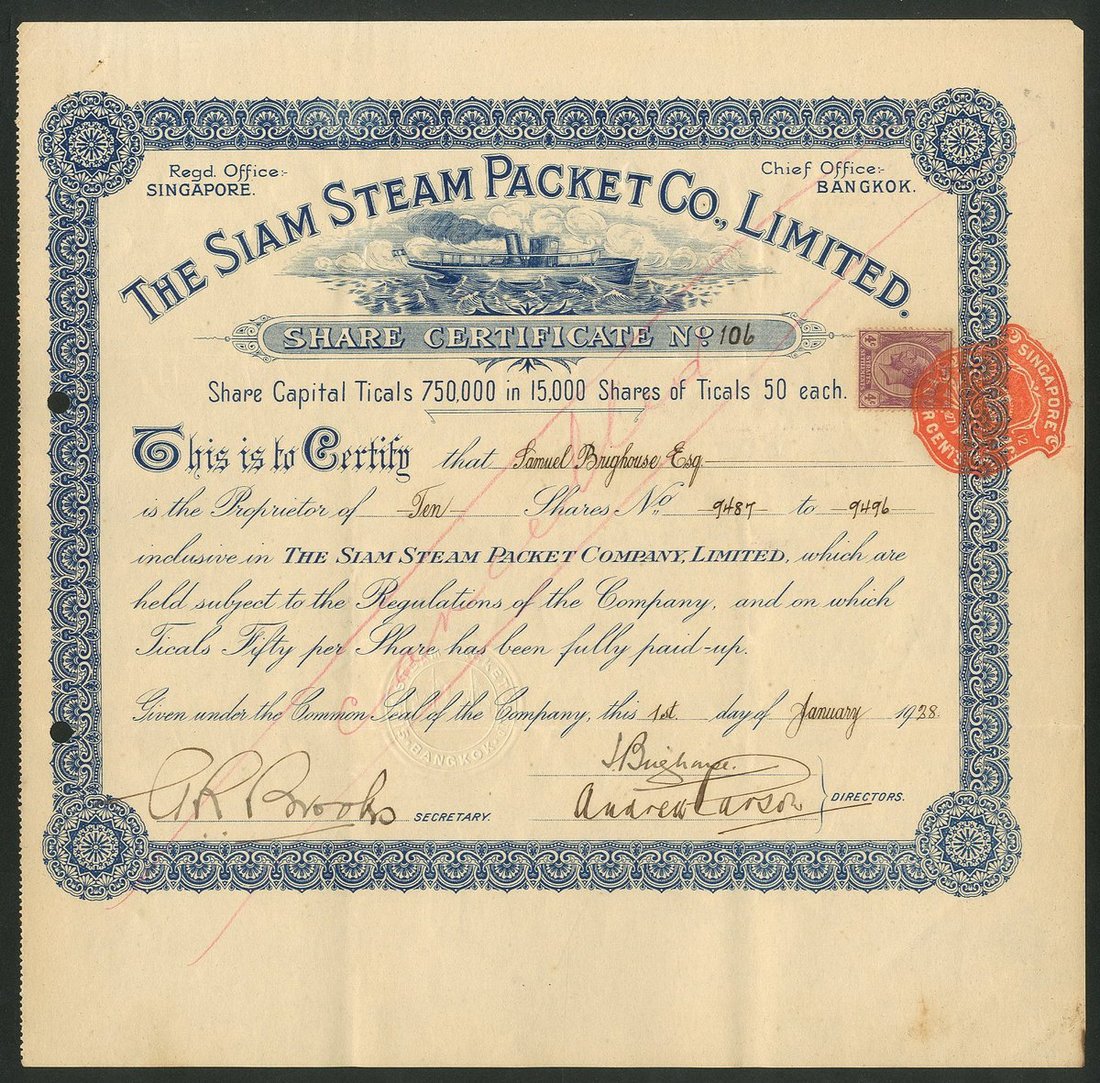 Regd. Office:-
SINGAPORE.
Chief Office:-
BANGKOK.
THE SIAM STEAM PACKET CO., LIMITED.
SHARE CERTIFICATE No. 106
Share Capital Ticals 750,000 in 15,000 Shares of Ticals 50 each.
This is to Certify that Samuel Brighouse Esq
is the Proprietor of Ten Shares No. 9487 to 9496
inclusive in THE SIAM STEAM PACKET COMPANY, LIMITED, which are
held subject to the Regulations of the Company, and on which
Ticals Fifty per Share has been fully paid-up.
Given under the Common Seal of the Company, this 1st. day of January 1928.
Cancelled
BANGKOK
S. Brighouse.
Andrew Carson
DIRECTORS.
SECRETARY.
SINGAPORE
CENTS
12